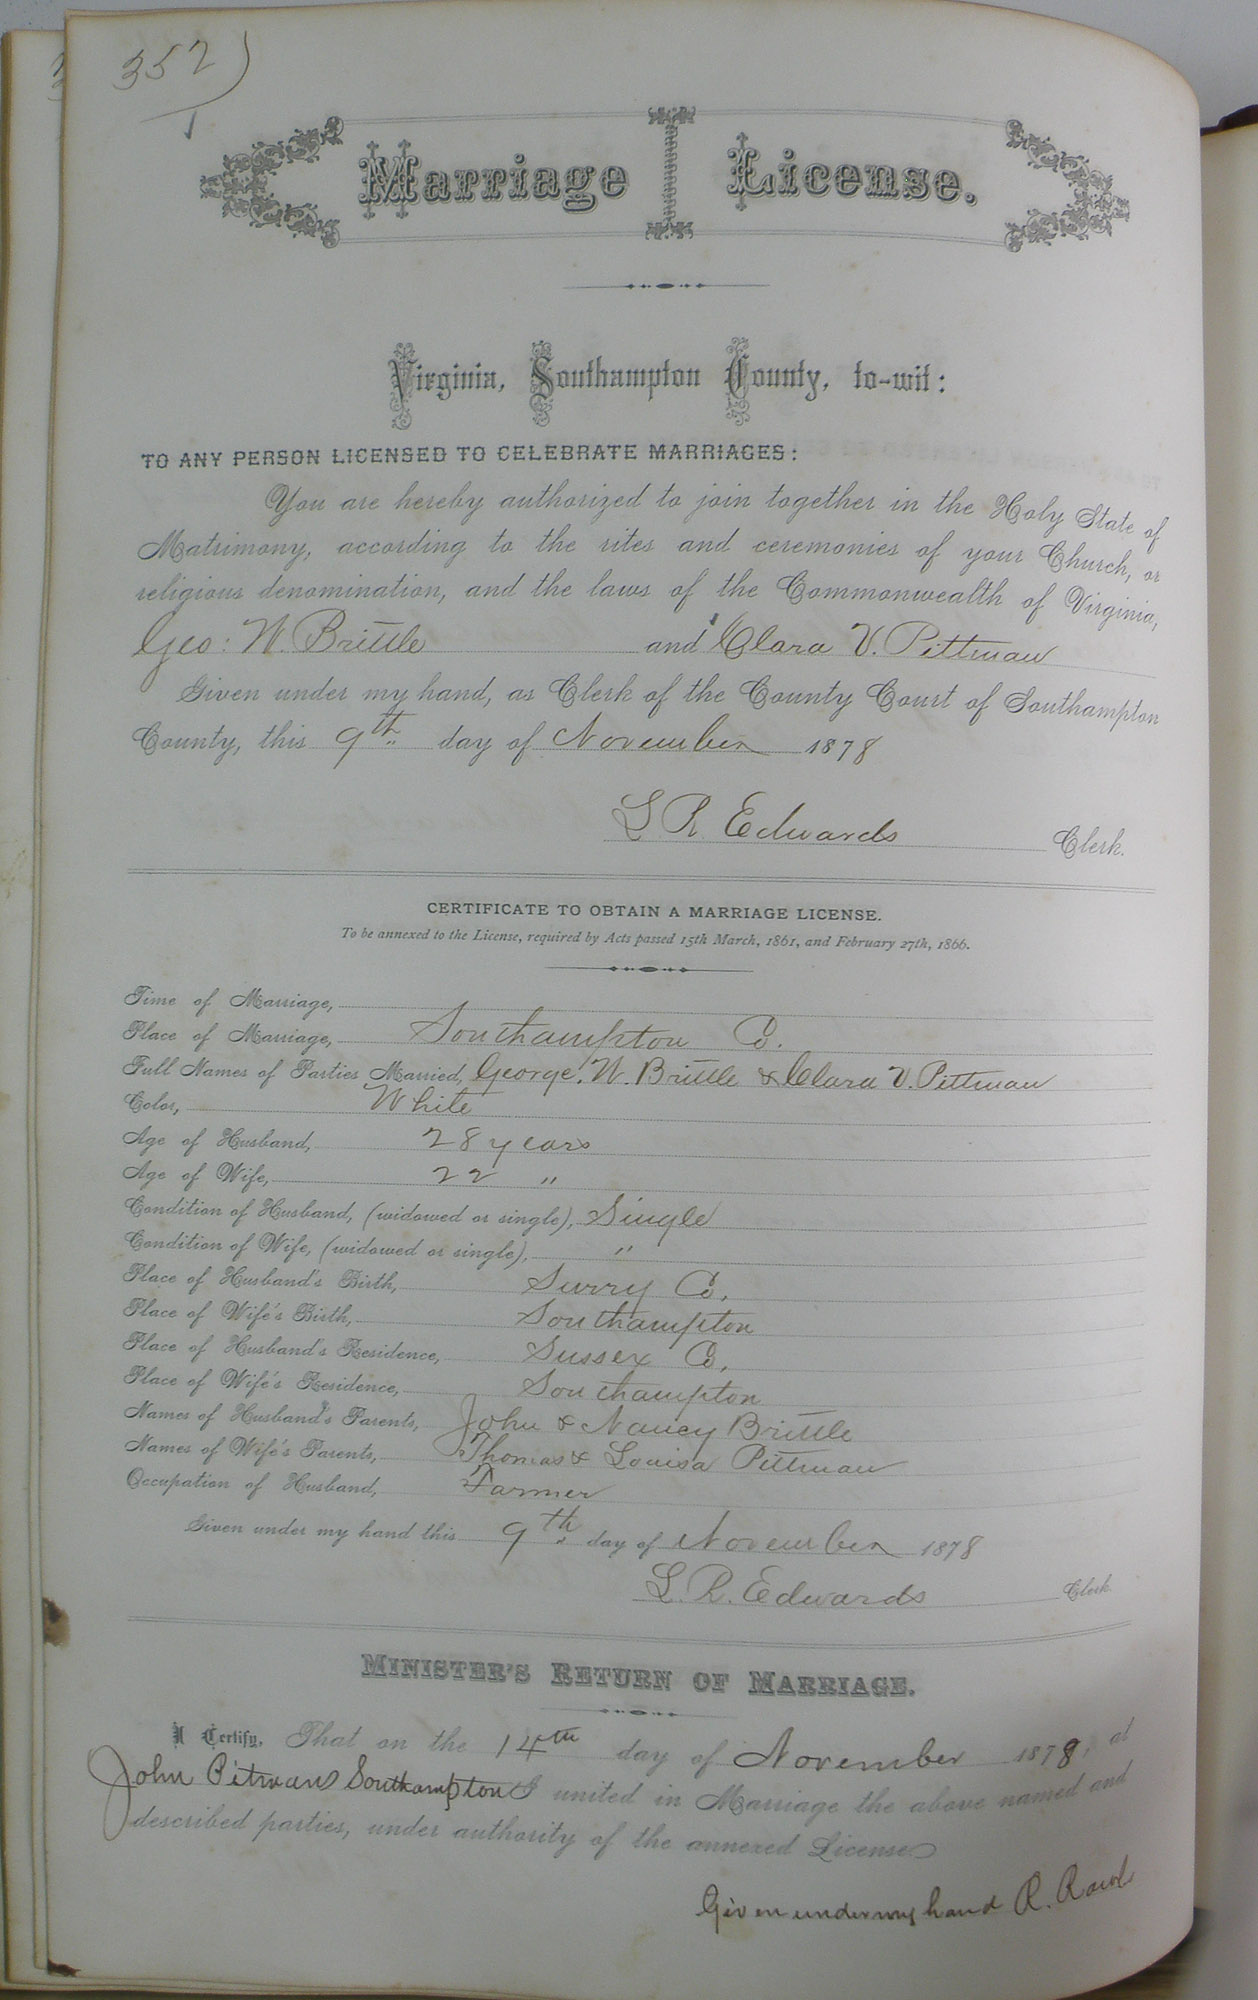 352)
Marriage License.
Virginia, Southampton County, to-wit:
TO ANY PERSON LICENSED TO CELEBRATE MARRIAGES:
You are hereby authorized to join together in the Holy State of
Matrimony, according to the rites and ceremonies of your Church, or
religious denomination, and the laws of the Commonwealth of Virginia,
Geo: W. Brittle and Clara V. Pittman
Given under my hand, as Clerk of the County Court of Southampton
County, this 9th day of November 1878
L. R. Edwards Clerk.
CERTIFICATE TO OBTAIN A MARRIAGE LICENSE.
To be annexed to the License, required by Acts passed 15th March, 1861, and February 27th, 1866.
Time of Marriage,
Place of Marriage, Southampton Co.
Full Names of Parties Married, George W. Brittle & Clara V. Pittman
Color, White
Age of Husband, 28 years
Age of Wife, 22 "
Condition of Husband, (widowed or single), Single
Condition of Wife, (widowed or single), "
Place of Husband's Birth, Surry Co.
Place of Wife's Birth, Southampton
Place of Husband's Residence, Sussex Co.
Place of Wife's Residence, Southampton
Names of Husband's Parents, John & Nancy Brittle
Names of Wife's Parents, Thomas & Louisa Pittman
Occupation of Husband, Farmer
Given under my hand this 9th day of November 1878
L. R. Edwards Clerk.
MINISTER'S RETURN OF MARRIAGE.
I Certify, That on the 14th day of November 1878, at
John Pitmans Southampton I united in Marriage the above named and
described parties, under authority of the annexed License
Given under my hand R.